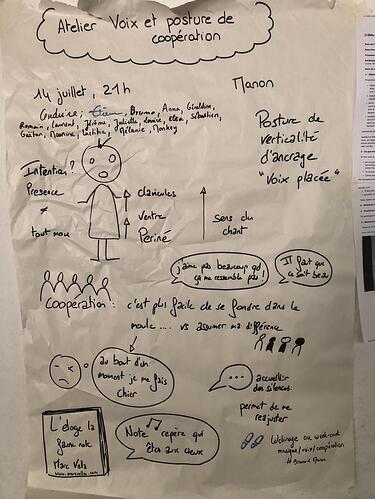 Atelier Voix et posture de
coopération
14 juillet, 21h
Manon
Bruno, Anna, Géraldine,
Romain, Laurent, Jérôme, Juliette, Louise, Elea, Sébastien,
Gaëtan, Maxime, Laetitia, Mélanie,
Posture de
verticalité
d'ancrage
"voix placée"
Intention?
Presence
≠
tout mou
clavicules
Ventre
Périné
Sens du
chant
j'aime pas beaucoup qd
ça me ressemble pas!
Il faut que
ça soit beau
Cooperation : c'est plus facile de se fondre dans le
moule .... vs assumer ma différence
au bout d'un
moment je me fais
chier
...
accueillir
des silences
permet de me
réajuster
L'éloge la
fausse note
Marc Vella
Note repère qui
Webinage ou week-end
musique/voix/coopération